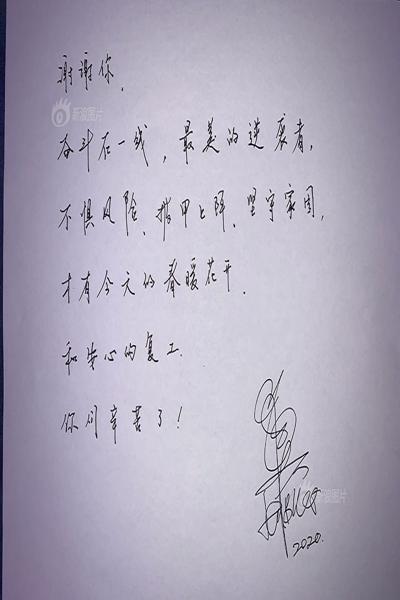 谢谢你,
新浪图片
奋斗在一线，最美的逆袭者，
不惧风险、披甲上阵、坚守家园，
才有今天的春暖花开
和安心的复工.
你们辛苦了！
新浪图片
2020.